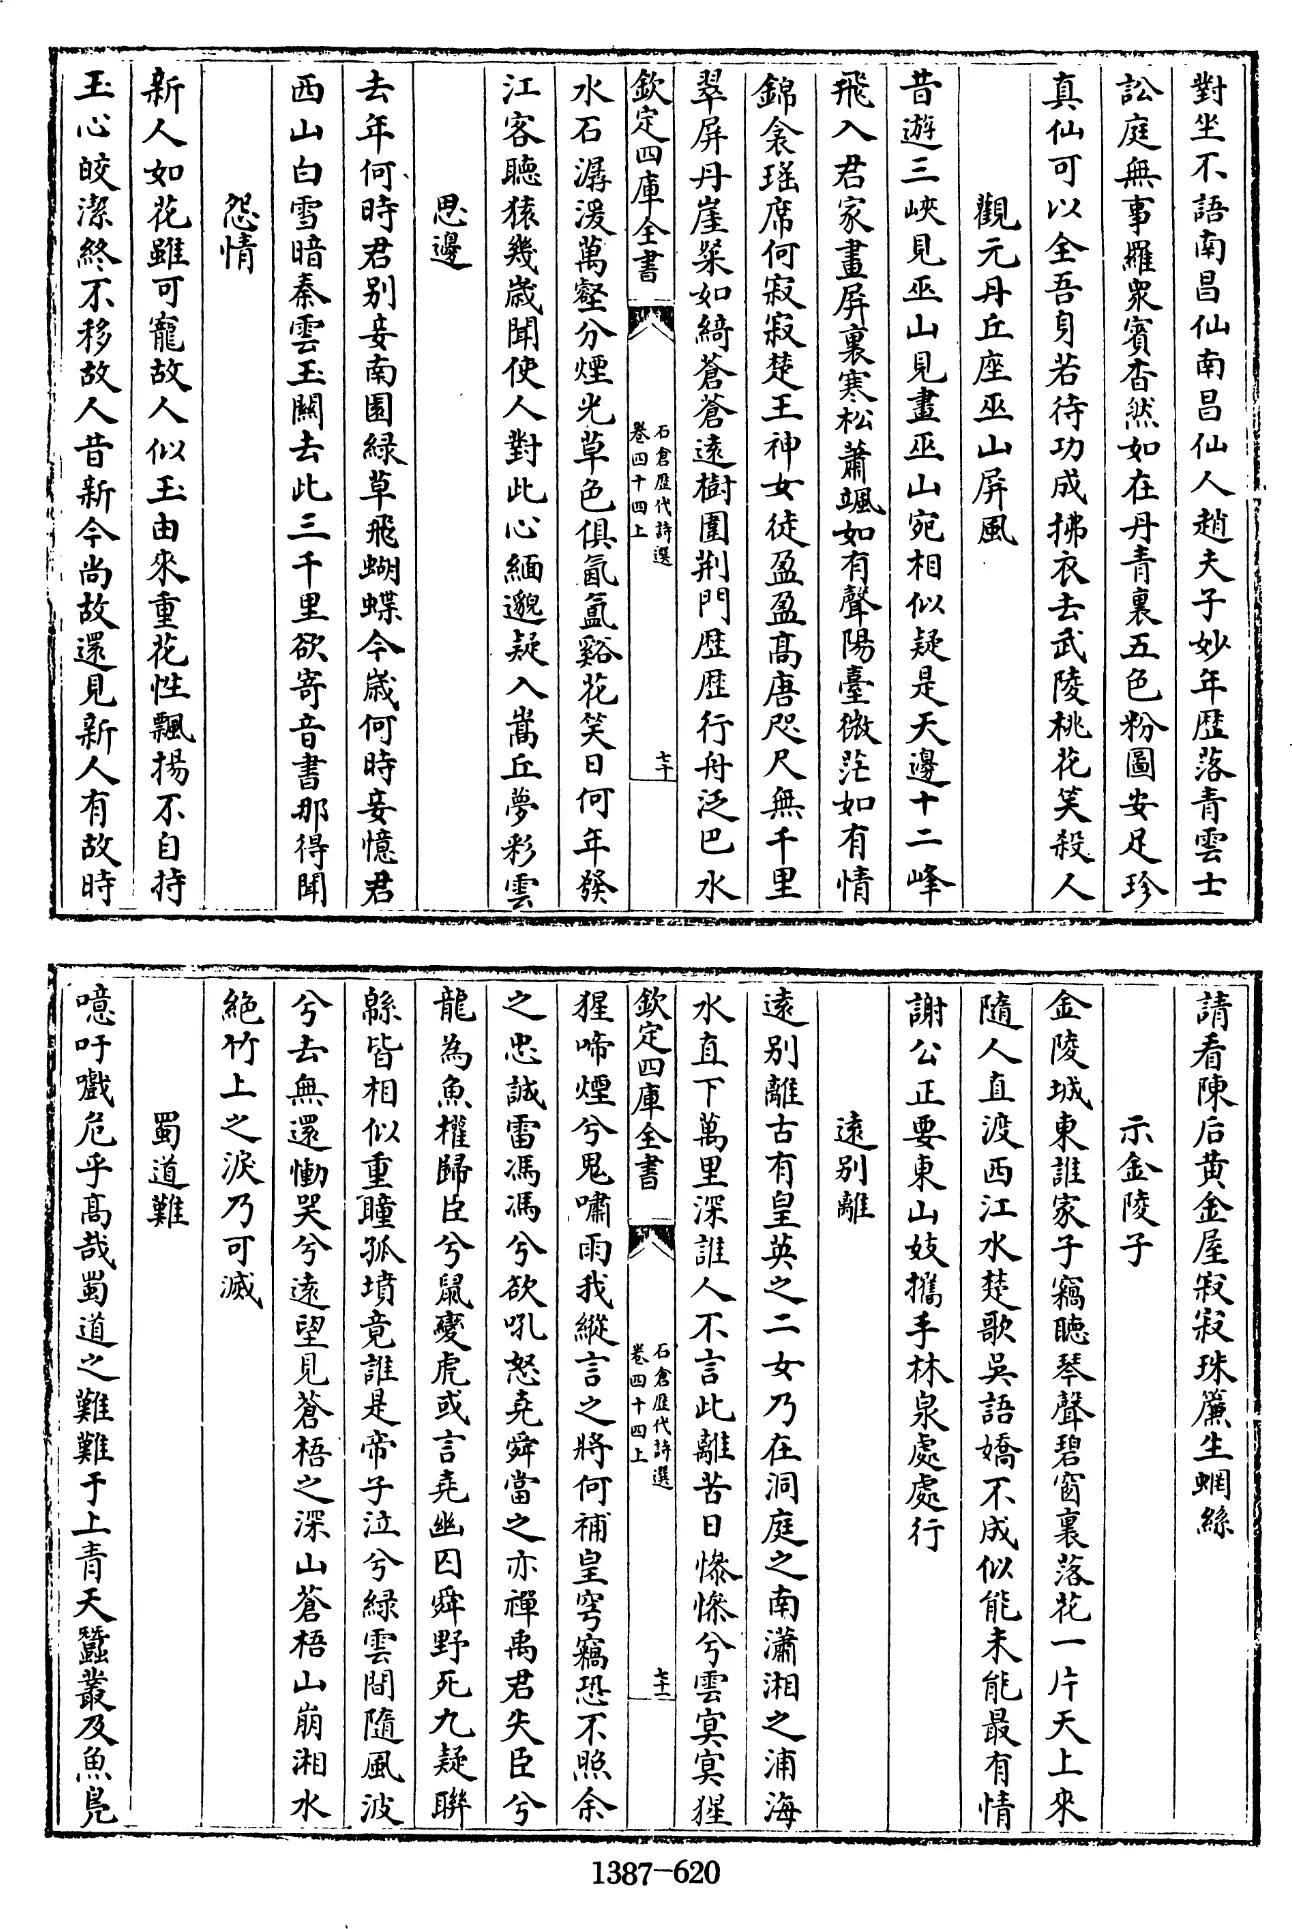 對坐不語南昌仙南昌仙人趙夫子妙年歴落青雲士
訟庭無事羅衆賓杳然如在丹青裏五色粉圖安足珍
真仙可以全吾身若待功成拂衣去武陵桃花笑殺人
觀元丹丘座巫山屏風
昔遊三峽見巫山見畫巫山宛相似疑是天邊十二峰
飛入君家畫屏裏寒松蕭颯如有聲陽臺微茫如有情
錦衾瑶席何寂寂楚王神女徒盈盈髙唐咫尺無千里
翠屏丹崖粲如綺蒼蒼逺樹圍荆門歴歴行舟泛巴水
欽定四庫全書
石倉歴代詩選
卷四十四上
七十
水石潺湲萬壑分煙光草色俱氤氳谿花笑日何年發
江客聽猿幾歳聞使人對此心緬邈疑入嵩丘夢彩雲
思邊
去年何時君别妾南園緑草飛蝴蝶今歳何時妾憶君
西山白雪暗秦雲玉關去此三千里欲寄音書那得聞
怨情
新人如花雖可寵故人似玉由來重花性飄揚不自持
玉心皎潔終不移故人昔新今尚故還見新人有故時
請看陳后黄金屋寂寂珠簾生蜩絲
示金陵子
金陵城東誰家子竊聽琴聲碧窗裏落花一片天上來
隨人直渡西江水楚歌吳語嬌不成似能未能最有情
謝公正要東山妓攜手林泉處處行
逺别離
逺别離古有皇英之二女乃在洞庭之南瀟湘之浦海
水直下萬里深誰人不言此離苦日慘慘兮雲冥冥猩
欽定四庫全書
石倉歴代詩選
卷四十四上
七十一
猩啼煙兮鬼嘯雨我縱言之將何補皇穹竊恐不照余
之忠誠雷馮馮兮欲吼怒堯舜當之亦禪禹君失臣兮
龍為魚權歸臣兮鼠變虎或言堯幽囚舜野死九疑聨
緜皆相似重瞳孤墳竟誰是帝子泣兮緑雲間隨風波
兮去無還慟哭兮逺望見蒼梧之深山蒼梧山崩湘水
絶竹上之淚乃可滅
蜀道難
噫吁嚱危乎髙哉蜀道之難難于上青天蠶叢及魚鳧
1387-620